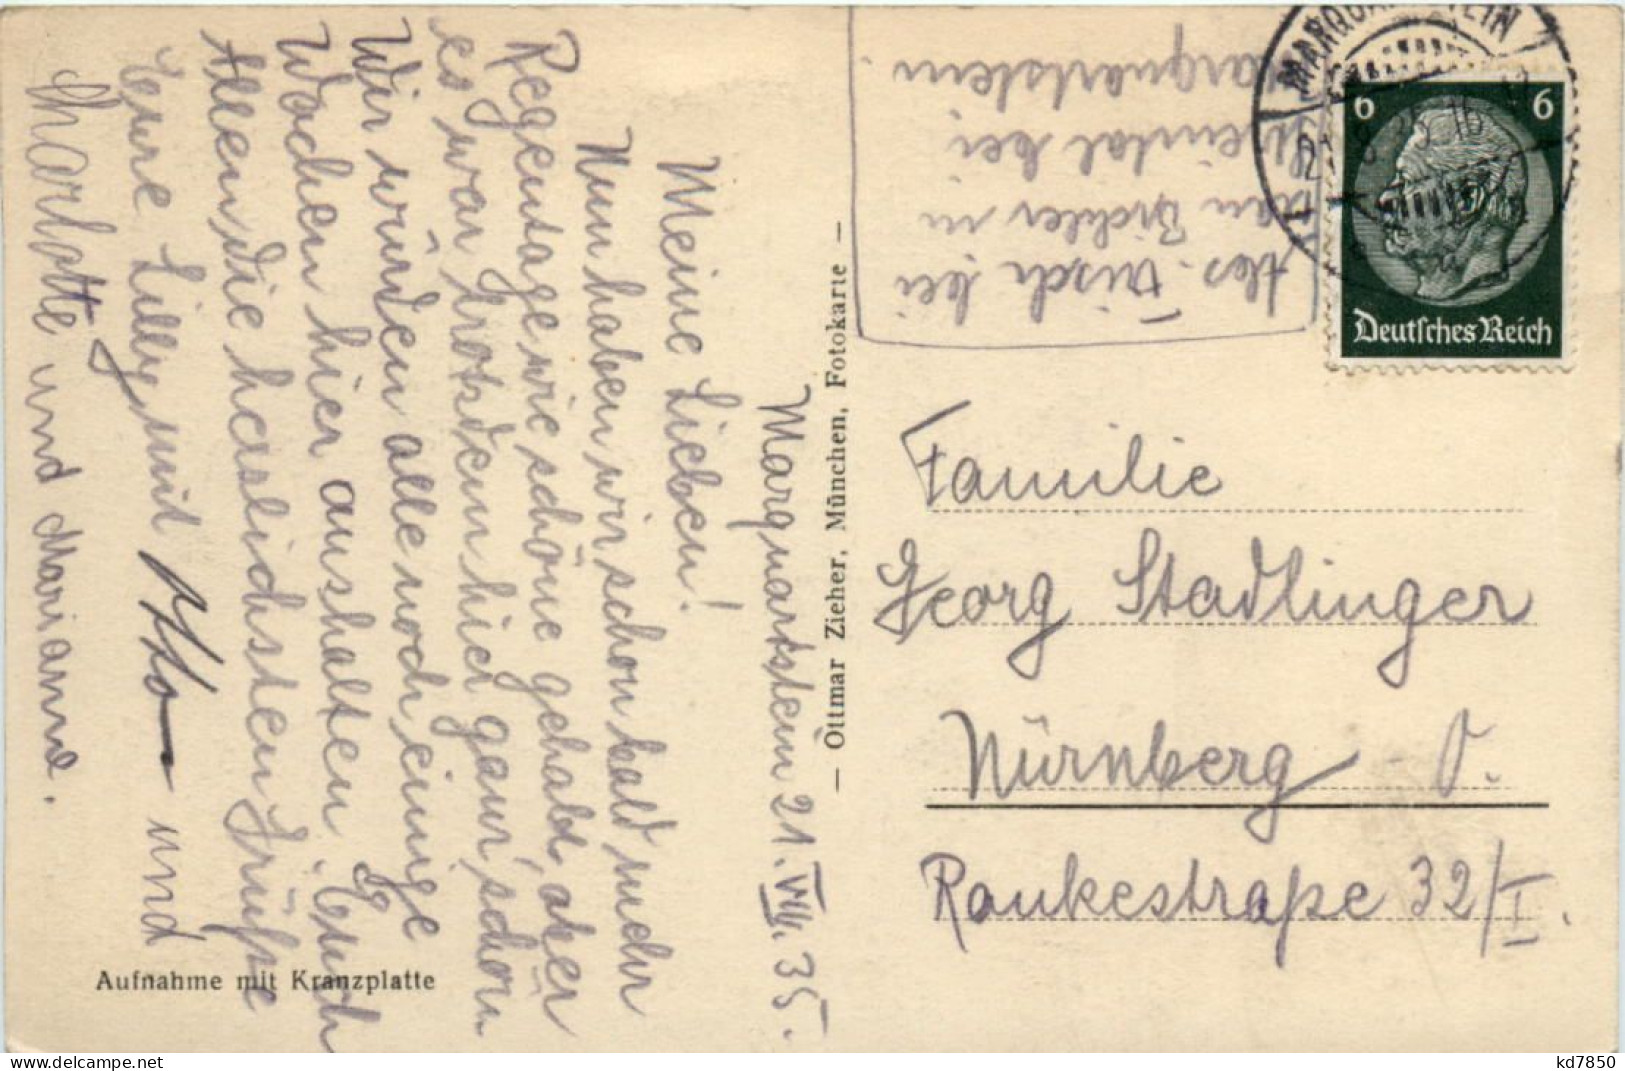 Marquartstein 21.VIII.35.
Meine Lieben!
Nun haben wir schon bald mehr
Regentage wie schöne gehabt, aber
es war trotzdem hier ganz schön
Wir würden alle noch einige
Wochen hier aushalten. Euch
Allen die herzlichsten Grüße
Eure Lilly mit Otto und
Charlotte und Marianne.
Aufnahme mit Kranzplatte
— Ottmar Zieher, München, Fotokarte —
Abs. Frisch bei
in
bei
Marquartstein
MARQUARTSTEIN
6 6
Deutsches Reich
Familie
Georg Stadlinger
Nürnberg O.
Rankestraße 32/I.
kd7850